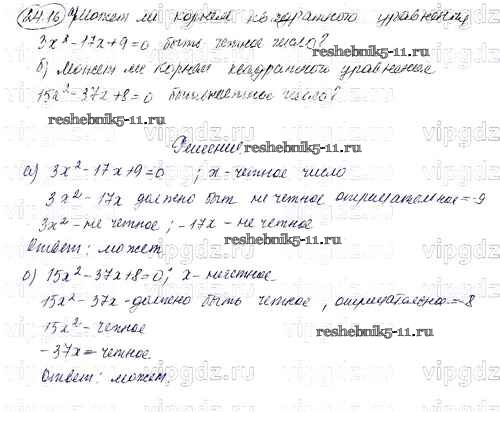 24.16 а) Может ли корнем квадратного уравнения
3x² - 17x + 9 = 0 быть четное число?
б) Может ли корнем квадратного уравнения
15x² - 37x + 8 = 0 быть нечетное число?
reshebnik5-11.ru
reshebnik5-11.ru
Решение
reshebnik5-11.ru
а) 3x² - 17x + 9 = 0 ; x - четное число
3x² - 17x должено быть не четное отрицательное = -9
3x² - не четное ; -17x - не четное
Ответ: может
reshebnik5-11.ru
б) 15x² - 37x + 8 = 0; x - нечетное
15x² - 37x - должено быть четное, отрицательное = -8
15x² - четное
reshebnik5-11.ru
-37x = четное
Ответ: может.